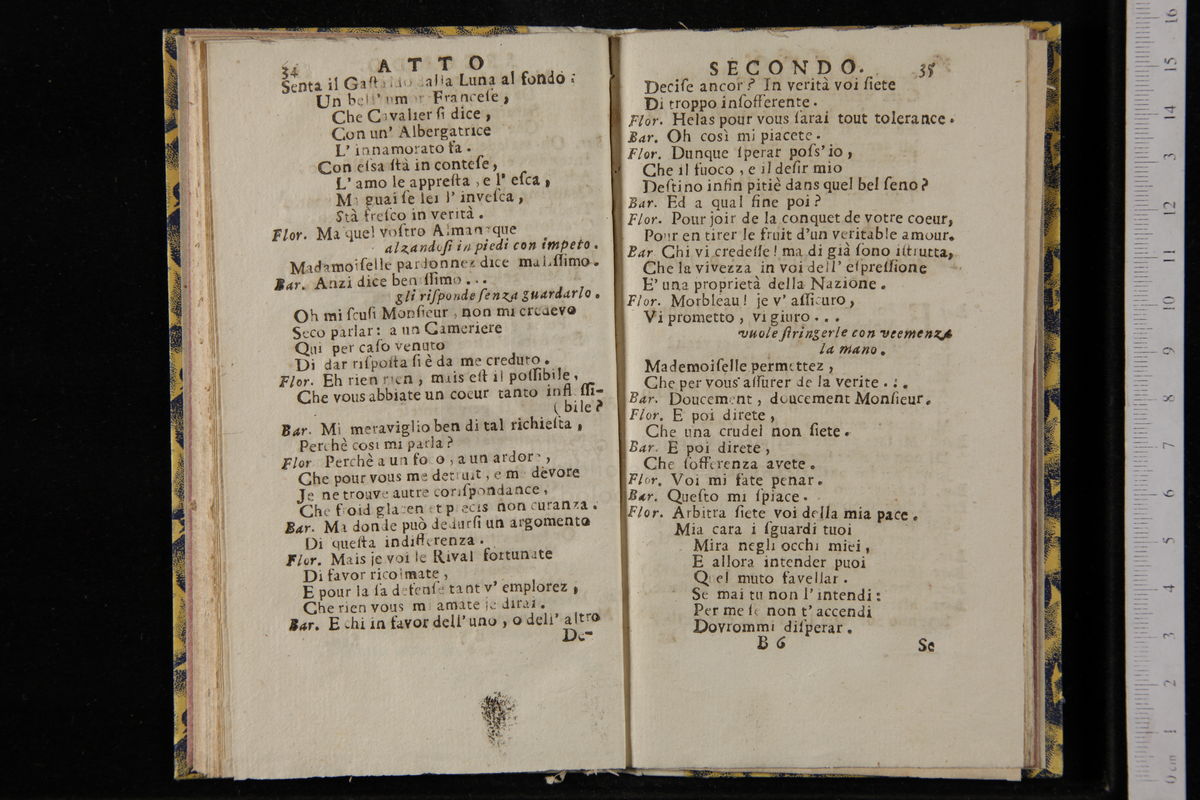 34 ATTO
Senta il Gaſtaldo dalla Luna al fondo:
Un bell' umor Franceſe,
Che Cavalier ſi dice,
Con un' Albergatrice
L' innamorato fa.
Con eſsa ſtà in conteſe,
L' amo le appreſta, e l' eſca,
Ma guai ſe lei l' inveſca,
Stà freſco in verità.
Flor. Ma quel voſtro Almanaque
alzandoſi in piedi con impeto.
Madamoiſelle pardonnez dice maliſſimo.
Bar. Anzi dice beniſſimo...
gli riſponde ſenza guardarlo.
Oh mi ſcuſi Monſieur, non mi credevo
Seco parlar: a un Cameriere
Qui per caſo venuto
Di dar riſpoſta ſi è da me creduto.
Flor. Eh rien rien, mais eſt il poſſibile,
Che vous abbiate un coeur tanto infleſſi-
(bile?
Bar. Mi meraviglio ben di tal richieſta,
Perchè così mi parla?
Flor Perchè a un foco, a un ardore,
Che pour vous me detruit, e me dèvore
Je ne trouve autre coriſpondance,
Che froid glacen et precis non curanza.
Bar. Ma donde può dedurſi un argomento
Di queſta indifferenza.
Flor. Mais je voi le Rival fortunate
Di favor ricolmate,
E pour la ſa defenſe tant v' emplorez,
Che rien vous m' amate je dirai.
Bar. E chi in favor dell' uno, o dell' altro
De-
SECONDO. 35
Deciſe ancor? In verità voi ſiete
Di troppo inſofferente.
Flor. Helas pour vous ſarai tout tolerance.
Bar. Oh così mi piacete.
Flor. Dunque ſperar poſs' io,
Che il fuoco, e il deſir mio
Deſtino infin pitiè dans quel bel ſeno?
Bar. Ed a qual fine poi?
Flor. Pour joir de la conquet de votre coeur,
Pour en tirer le fruit d'un veritable amour.
Bar Chi vi credeſſe! ma di già ſono iſtrutta,
Che la vivezza in voi dell' eſpreſſione
E' una proprietà della Nazione.
Flor. Morbleau! je v' aſſicuro,
Vi prometto, vi giuro...
vuole ſtringerle con veemenza
la mano.
Mademoiſelle permettez,
Che per vous aſſurer de la verite...
Bar. Doucement, doucement Monſieur.
Flor. E poi direte,
Che una crudel non ſiete.
Bar. E poi direte,
Che ſofferenza avete.
Flor. Voi mi fate penar.
Bar. Queſto mi ſpiace.
Flor. Arbitra ſiete voi della mia pace.
Mia cara i ſguardi tuoi
Mira negli occhi miei,
E allora intender puoi
Quel muto favellar.
Se mai tu non l' intendi:
Per me ſe non t' accendi
Dovrommi diſperar.
B 6 Se